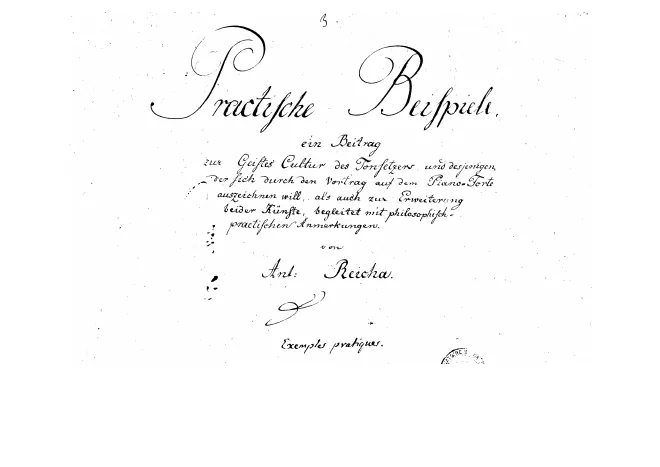 3
Practische Beispiele.
ein Beitrag
zur Geistes Cultur des Tonsetzers, und desjenigen,
der sich durch den Vortrag auf dem Piano-Forte
auszeichnen will, als auch zur Erweiterung
beider Künste, begleitet mit philosophisch-
practischen Anmerkungen.
von
Ant: Reicha.
Exemples pratiques.